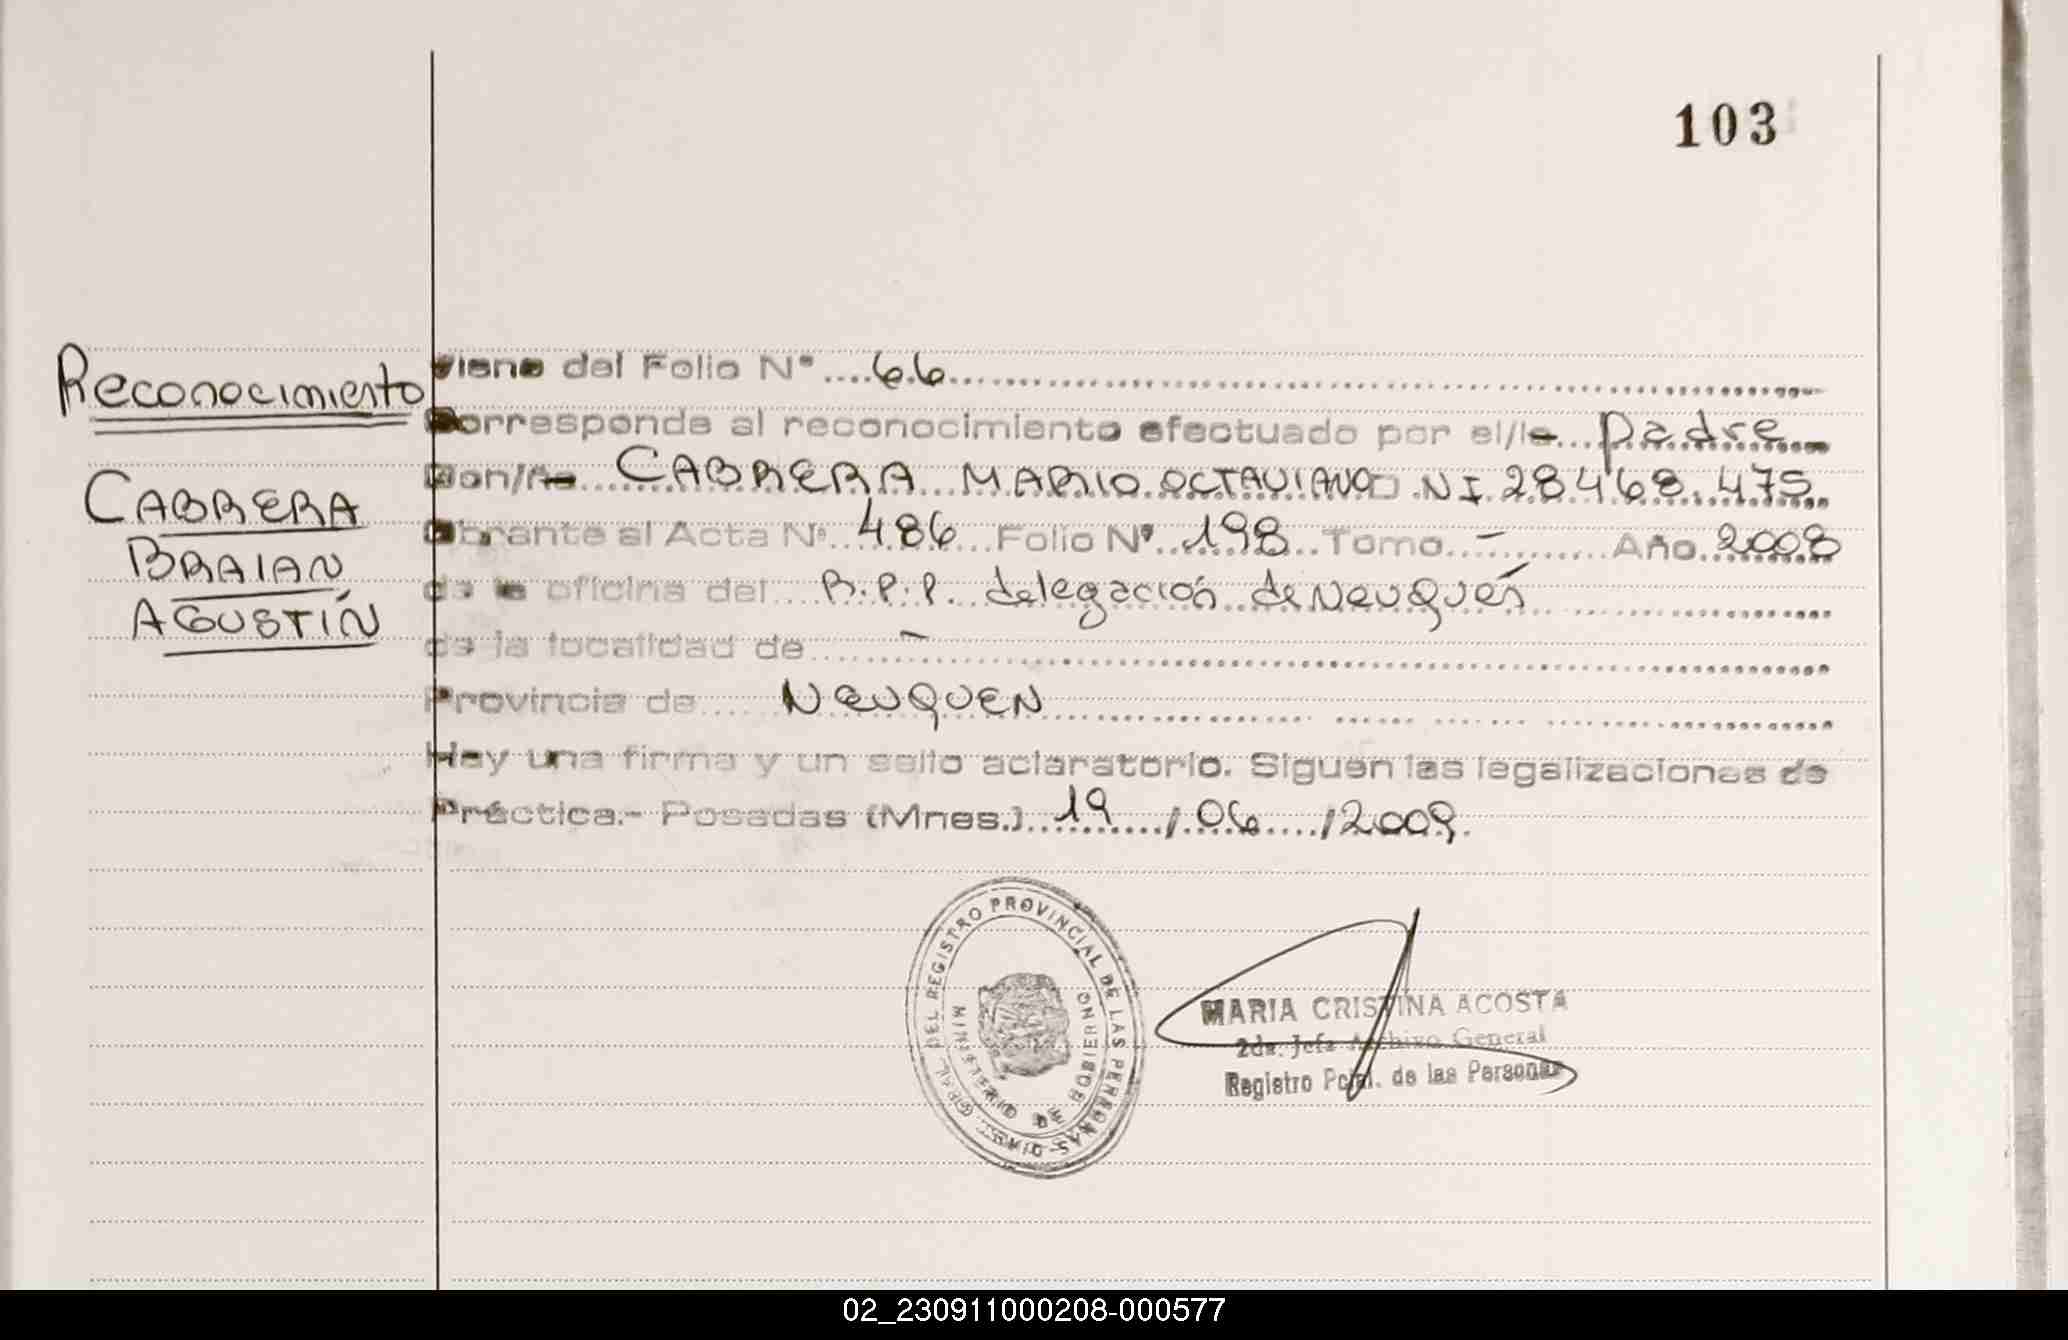 103
Reconocimiento
CABRERA
BRAIAN
AGUSTÍN
Viene del Folio Nº ....66....
Corresponde al reconocimiento efectuado por el/la... padre
Don/ña.... CABRERA MARIO OCTAVIANO NI 28468.475
Obrante al Acta Nº 486 Folio Nº 198 Tomo - Año 2008
de la oficina del R.P.P. delegación de Neuquén
de la localidad de -
Provincia de NEUQUEN
Hay una firma y un sello aclaratorio. Siguen las legalizaciones de
Práctica.- Posadas (Mnes.) 19 / 06 / 2009.
DEL REGISTRO PROVINCIAL DE LAS PERSONAS
MINISTERIO DE GOBIERNO
MARIA CRISTINA ACOSTA
2da. Jefa Archivo General
Registro Pcial. de las Personas
02_230911000208-000577